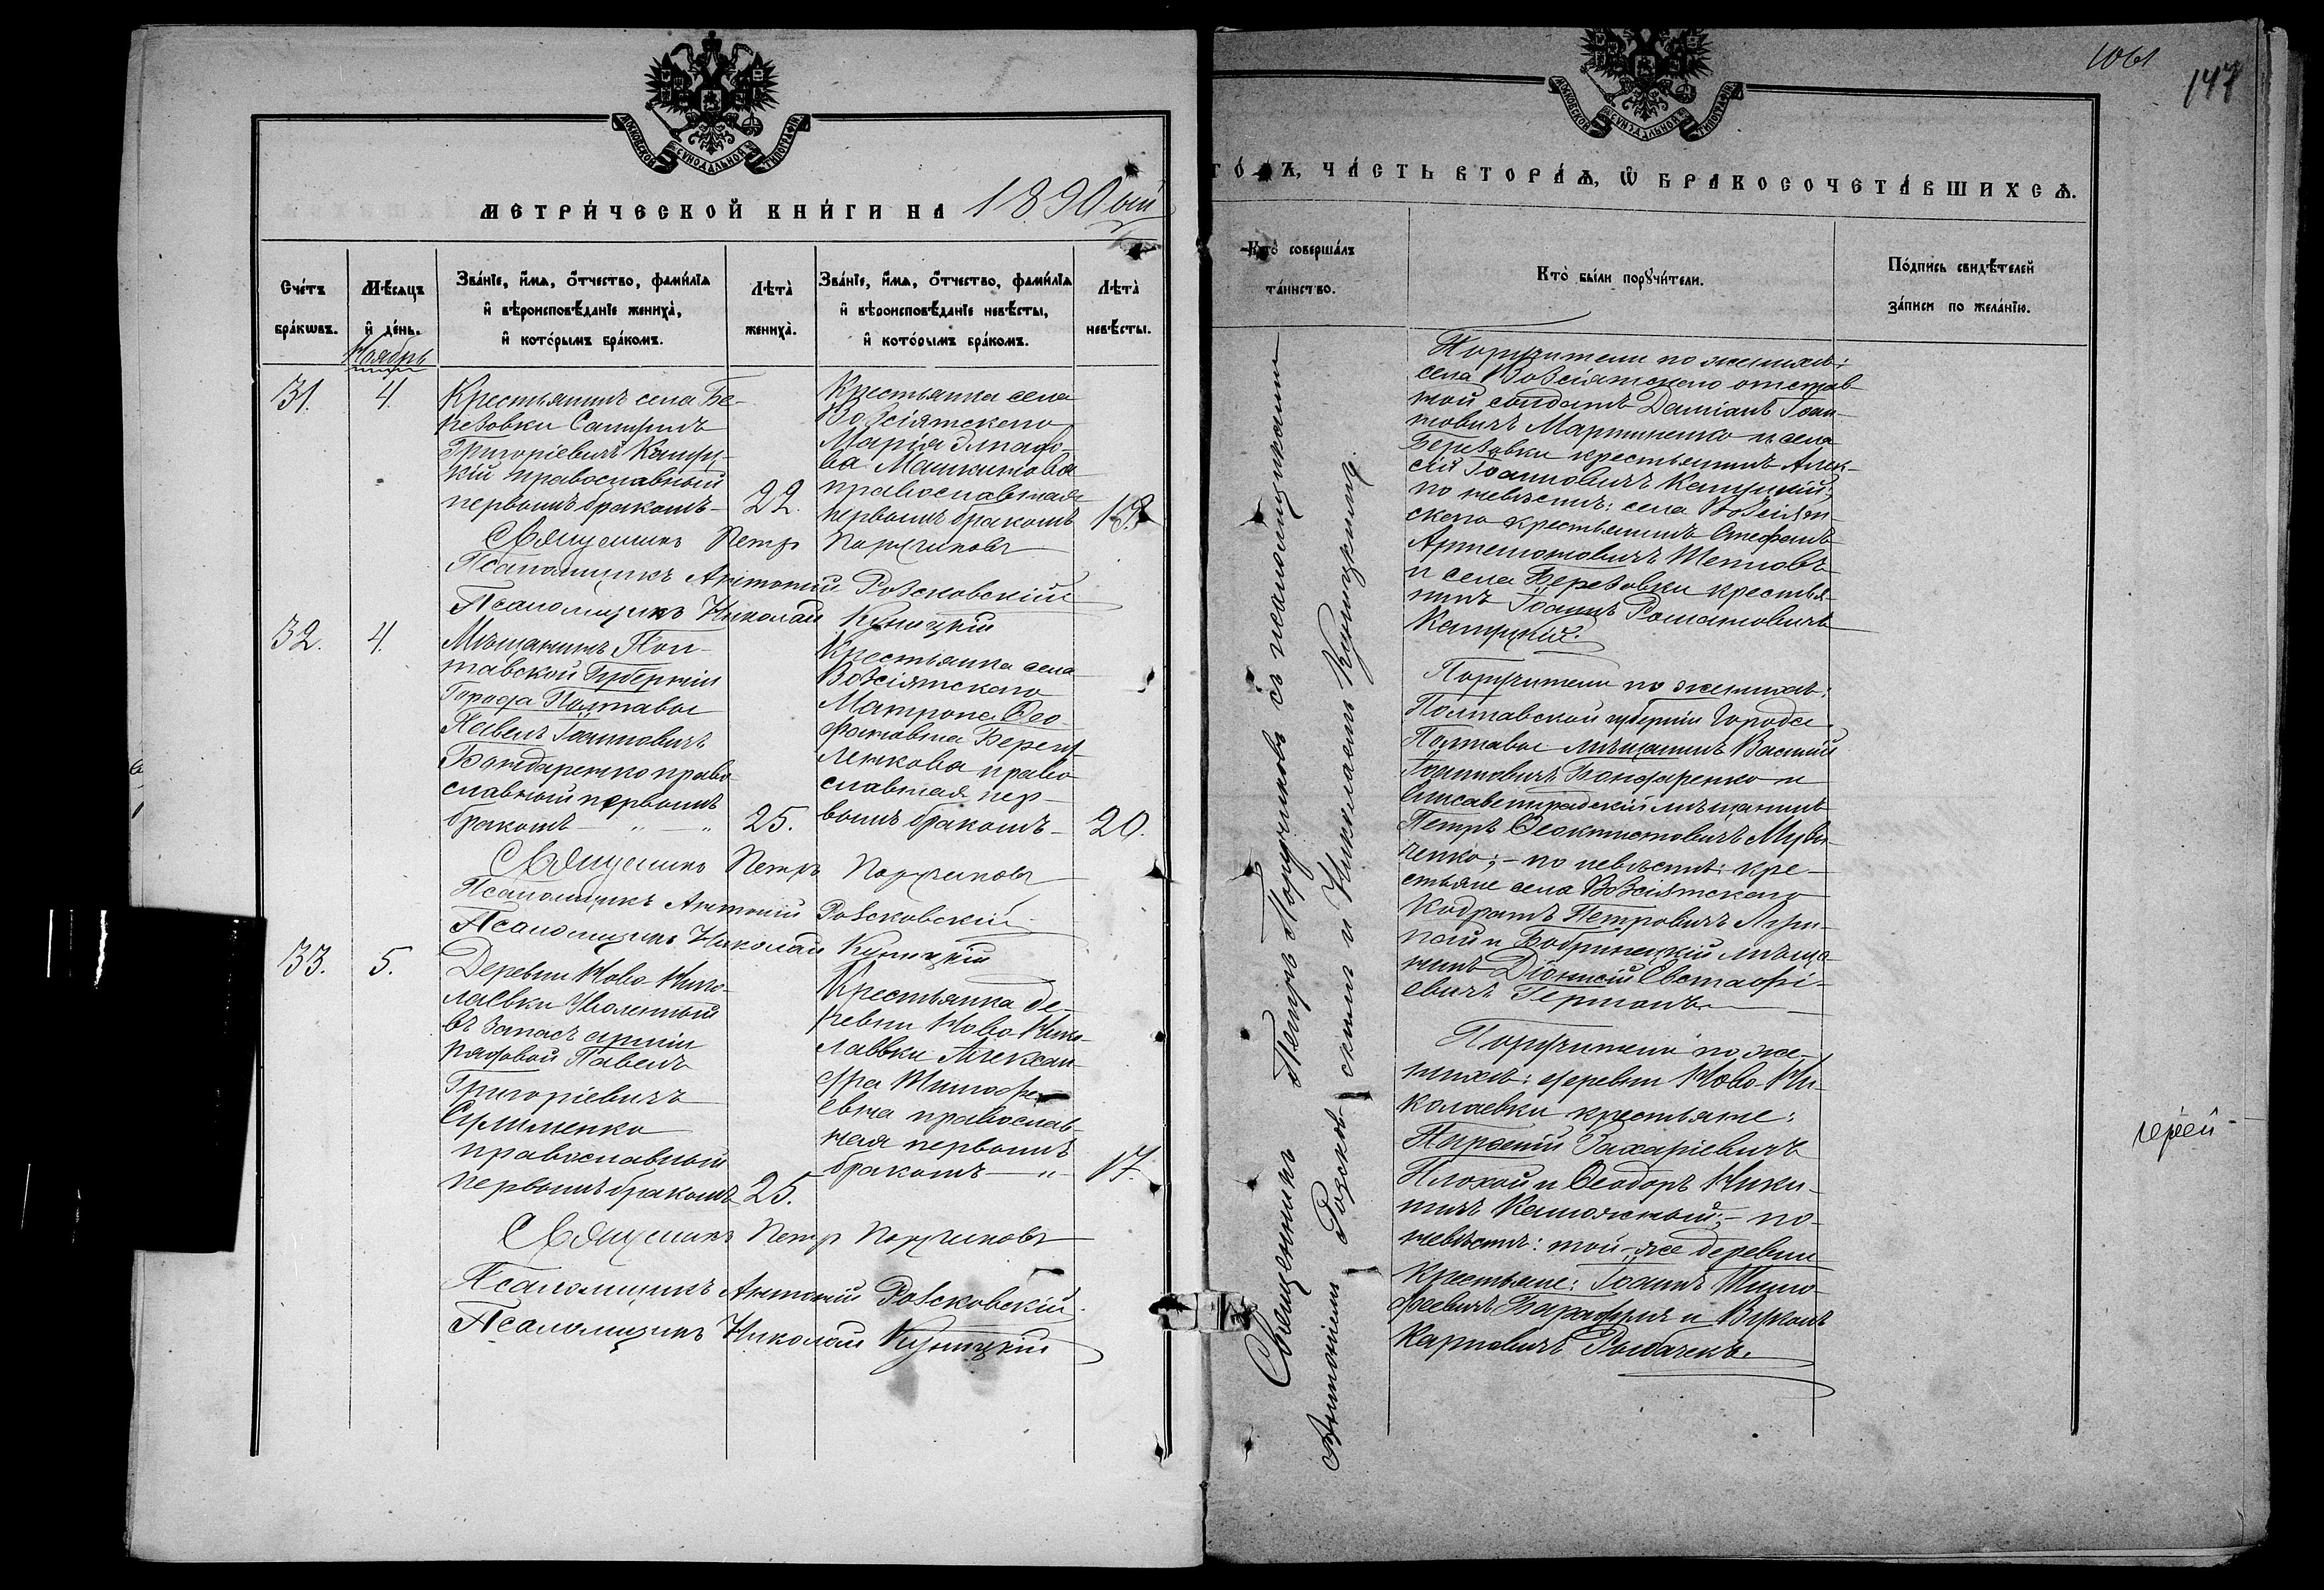 МОСКОВСКОЙ СѴНОДАЛЬНОЙ ТИПОГРАФІИ
МЕТРИ́ЧЕСКОЙ КНИ́ГИ НА 1890 ый
Сче́тъ бра́кѡвъ.
Мѣ́сяцъ и҆ де́нь.
Зва́нїе, и҆́мѧ, ѻ҆́тчество, фами́лїѧ и҆ вѣроисповѣ́данїе жениха̀, и҆ кото́рымъ бра́комъ.
Лѣта̀ жениха̀.
Зва́нїе, и҆́мѧ, ѻ҆́тчество, фами́лїѧ и҆ вѣроисповѣ́данїе невѣ́сты, и҆ кото́рымъ бра́комъ.
Лѣта̀ невѣ́сты.
Ноябрь
31.
4.
Крестьянинъ села Бе-
резовки
Григоріевичъ Капуц-
кій православный
первымъ бракомъ-
22.
Крестьянка села
Возсіятскаго
Марія
ва
православная
первымъ бракомъ
Священникъ Петръ Поручиковъ
Псаломщикъ Антоній Розсковскій
Псаломщикъ Николай Куницкій
32.
4.
Мѣщанинъ Пол-
тавской Губерніи
Города Полтавы
Павелъ Іоанновичъ
Бондаренко право
славный первымъ
бракомъ — „ — „
25.
Крестьянка села
Возсіятскаго
Матрона Ѳео-
фановна Берец
ленкова право
славная пер-
вымъ бракомъ-
20.
Священникъ Петръ Поручиковъ
Псаломщикъ Антоній Розсковскій
Псаломщикъ Николай Куницкій
33.
5.
Деревни Ново-Нико-
лаевки Уволенный
въ запасъ арміи
рядовой Павелъ
Григоріевичъ
православный
первымъ бракомъ
25.
Крестьянка де-
ревни Ново-Нико-
лаевки Алексан-
дра Тимофе
евна православ-
ная первымъ
бракомъ — „
17.
Священникъ Петръ Поручиковъ
Псаломщикъ Антоній Розсковскій
Псаломщикъ Николай Куницкій
1061
147
ЧА́СТЬ ВТОРА́Ѧ, Ѡ҆ БРАКОСОЧЕТА́ВШИХСѦ.
МОСКОВСКОЙ СѴНОДАЛЬНОЙ ТИПОГРАФІИ
Кто̀ соверша́лъ та́инство.
Кто̀ бы́ли порꙋчи́тели.
По́дпись свидѣ́телей за́писи по жела́нїю.
Священникъ Петръ Поручиковъ съ псаломщиками
Антоніемъ Розсков-
скимъ и Николаемъ Куницкимъ.
Поручители по женихѣ:
села Возсіятскаго отстав-
ной солдатъ Даміанъ Іоан-
новичъ Мартыненко и села
Березовки крестьянинъ Алек-
сій Іоанновичъ Капуцкій;
по невѣстѣ: села Возсіят-
скаго крестьянинъ Стефанъ
Артемоновичъ
и села Березовки крестья-
нинъ Іоаннъ Романовичъ
Капуцкій.
Поручители по женихѣ:
Полтавской губерніи Города
Полтавы мѣщанинъ Василій
Іоанновичъ Бондаренко и
Елисаветградскій мѣщанинъ
Петръ Ѳеоктистовичъ
ченко; - по невѣстѣ: кре-
стьяне села Возсіятскаго
Кодратъ Петровичъ
и Бобринецкій мѣща-
нинъ Діонисій Евстафі-
евичъ Германъ.
Поручители по же-
нихѣ: деревни Ново-Ни-
колаевки крестьяне:
Захаріевичъ
Плохой и Ѳеодоръ Ники-
тичъ - по
невѣстѣ: той-же деревни
Крестьяне: Іоаннъ Тимо-
феевичъ и
Карповичъ Рыбачекъ.
іерей